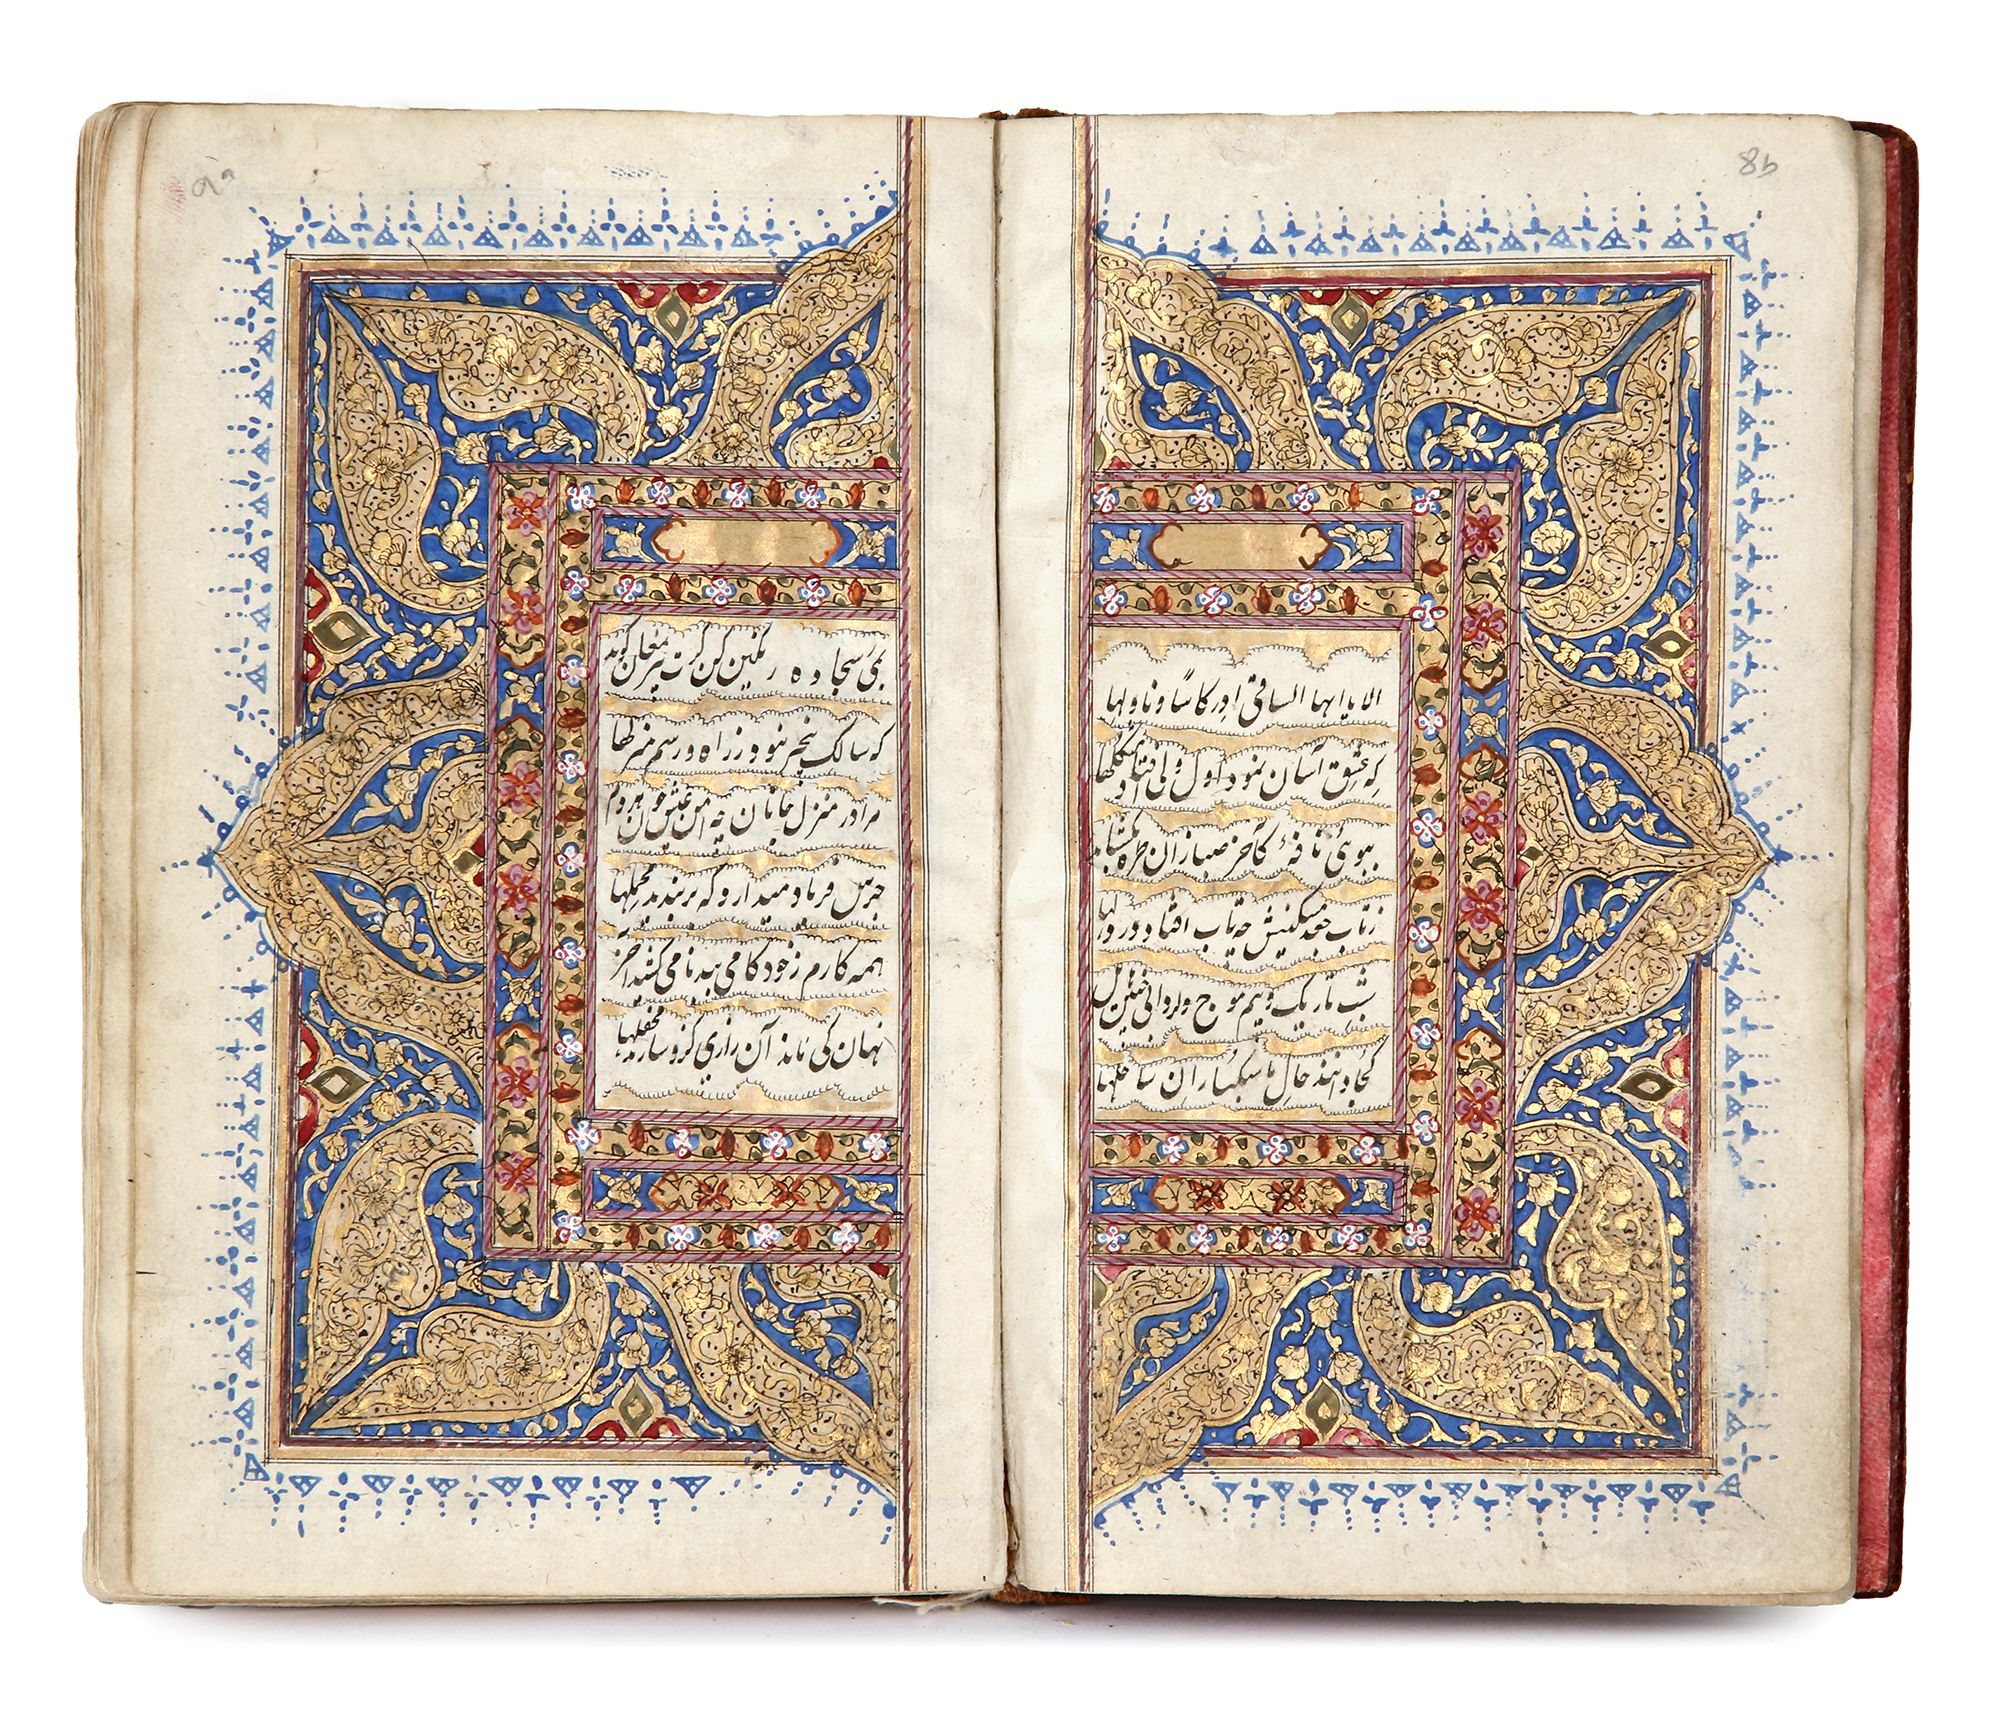 8b
الا یا ایها الساقی ادر کاسا و ناولها
که عشق آسان نمود اول ولی افتاد مشکلها
ببوئی نافهٔ کآخر صبا زان طره بکشاید
ز تاب جعد مشکینش چه تاب افتاد در دلها
شب تاریک و بیم موج و گردابی چنین
کجا دانند حال ما سبکباران ساحلها
9a
بمی سجاده رنگین کن گرت پیر مغان گوید
که سالک بیخبر نبود ز راه و رسم منزلها
مرا در منزل جانان چه امن عیش چون هر دم
جرس فریاد میدارد که بربندید محملها
همه کارم ز خود کامی ببدنامی کشید آخر
نهان کی ماند آن رازی کزو سازند محفلها